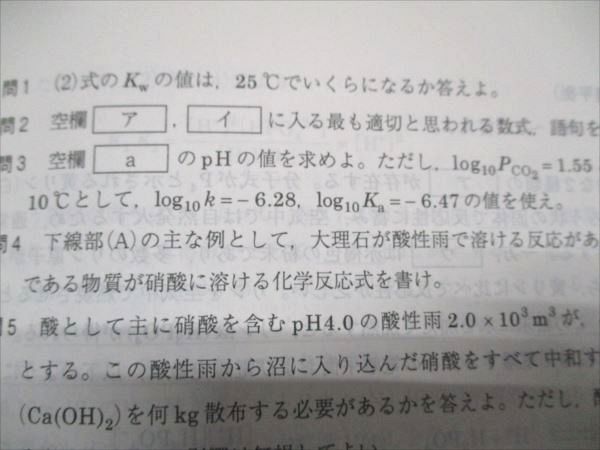 問1 (2)式のKwの値は，25℃でいくらになるか答えよ。
問2 空欄 ア ，イ に入る最も適切と思われる数式，語句を
問3 空欄 a のpHの値を求めよ。ただし，log10PCO2＝1.55
10℃として，log10k＝－6.28，log10Ka＝－6.47の値を使え。
問4 下線部(A)の主な例として，大理石が酸性雨で溶ける反応があ
である物質が硝酸に溶ける化学反応式を書け。
問5 酸として主に硝酸を含むpH4.0の酸性雨2.0×10³m³が，
とする。この酸性雨から沼に入り込んだ硝酸をすべて中和す
(Ca(OH)2)を何kg散布する必要があるかを答えよ。ただし，